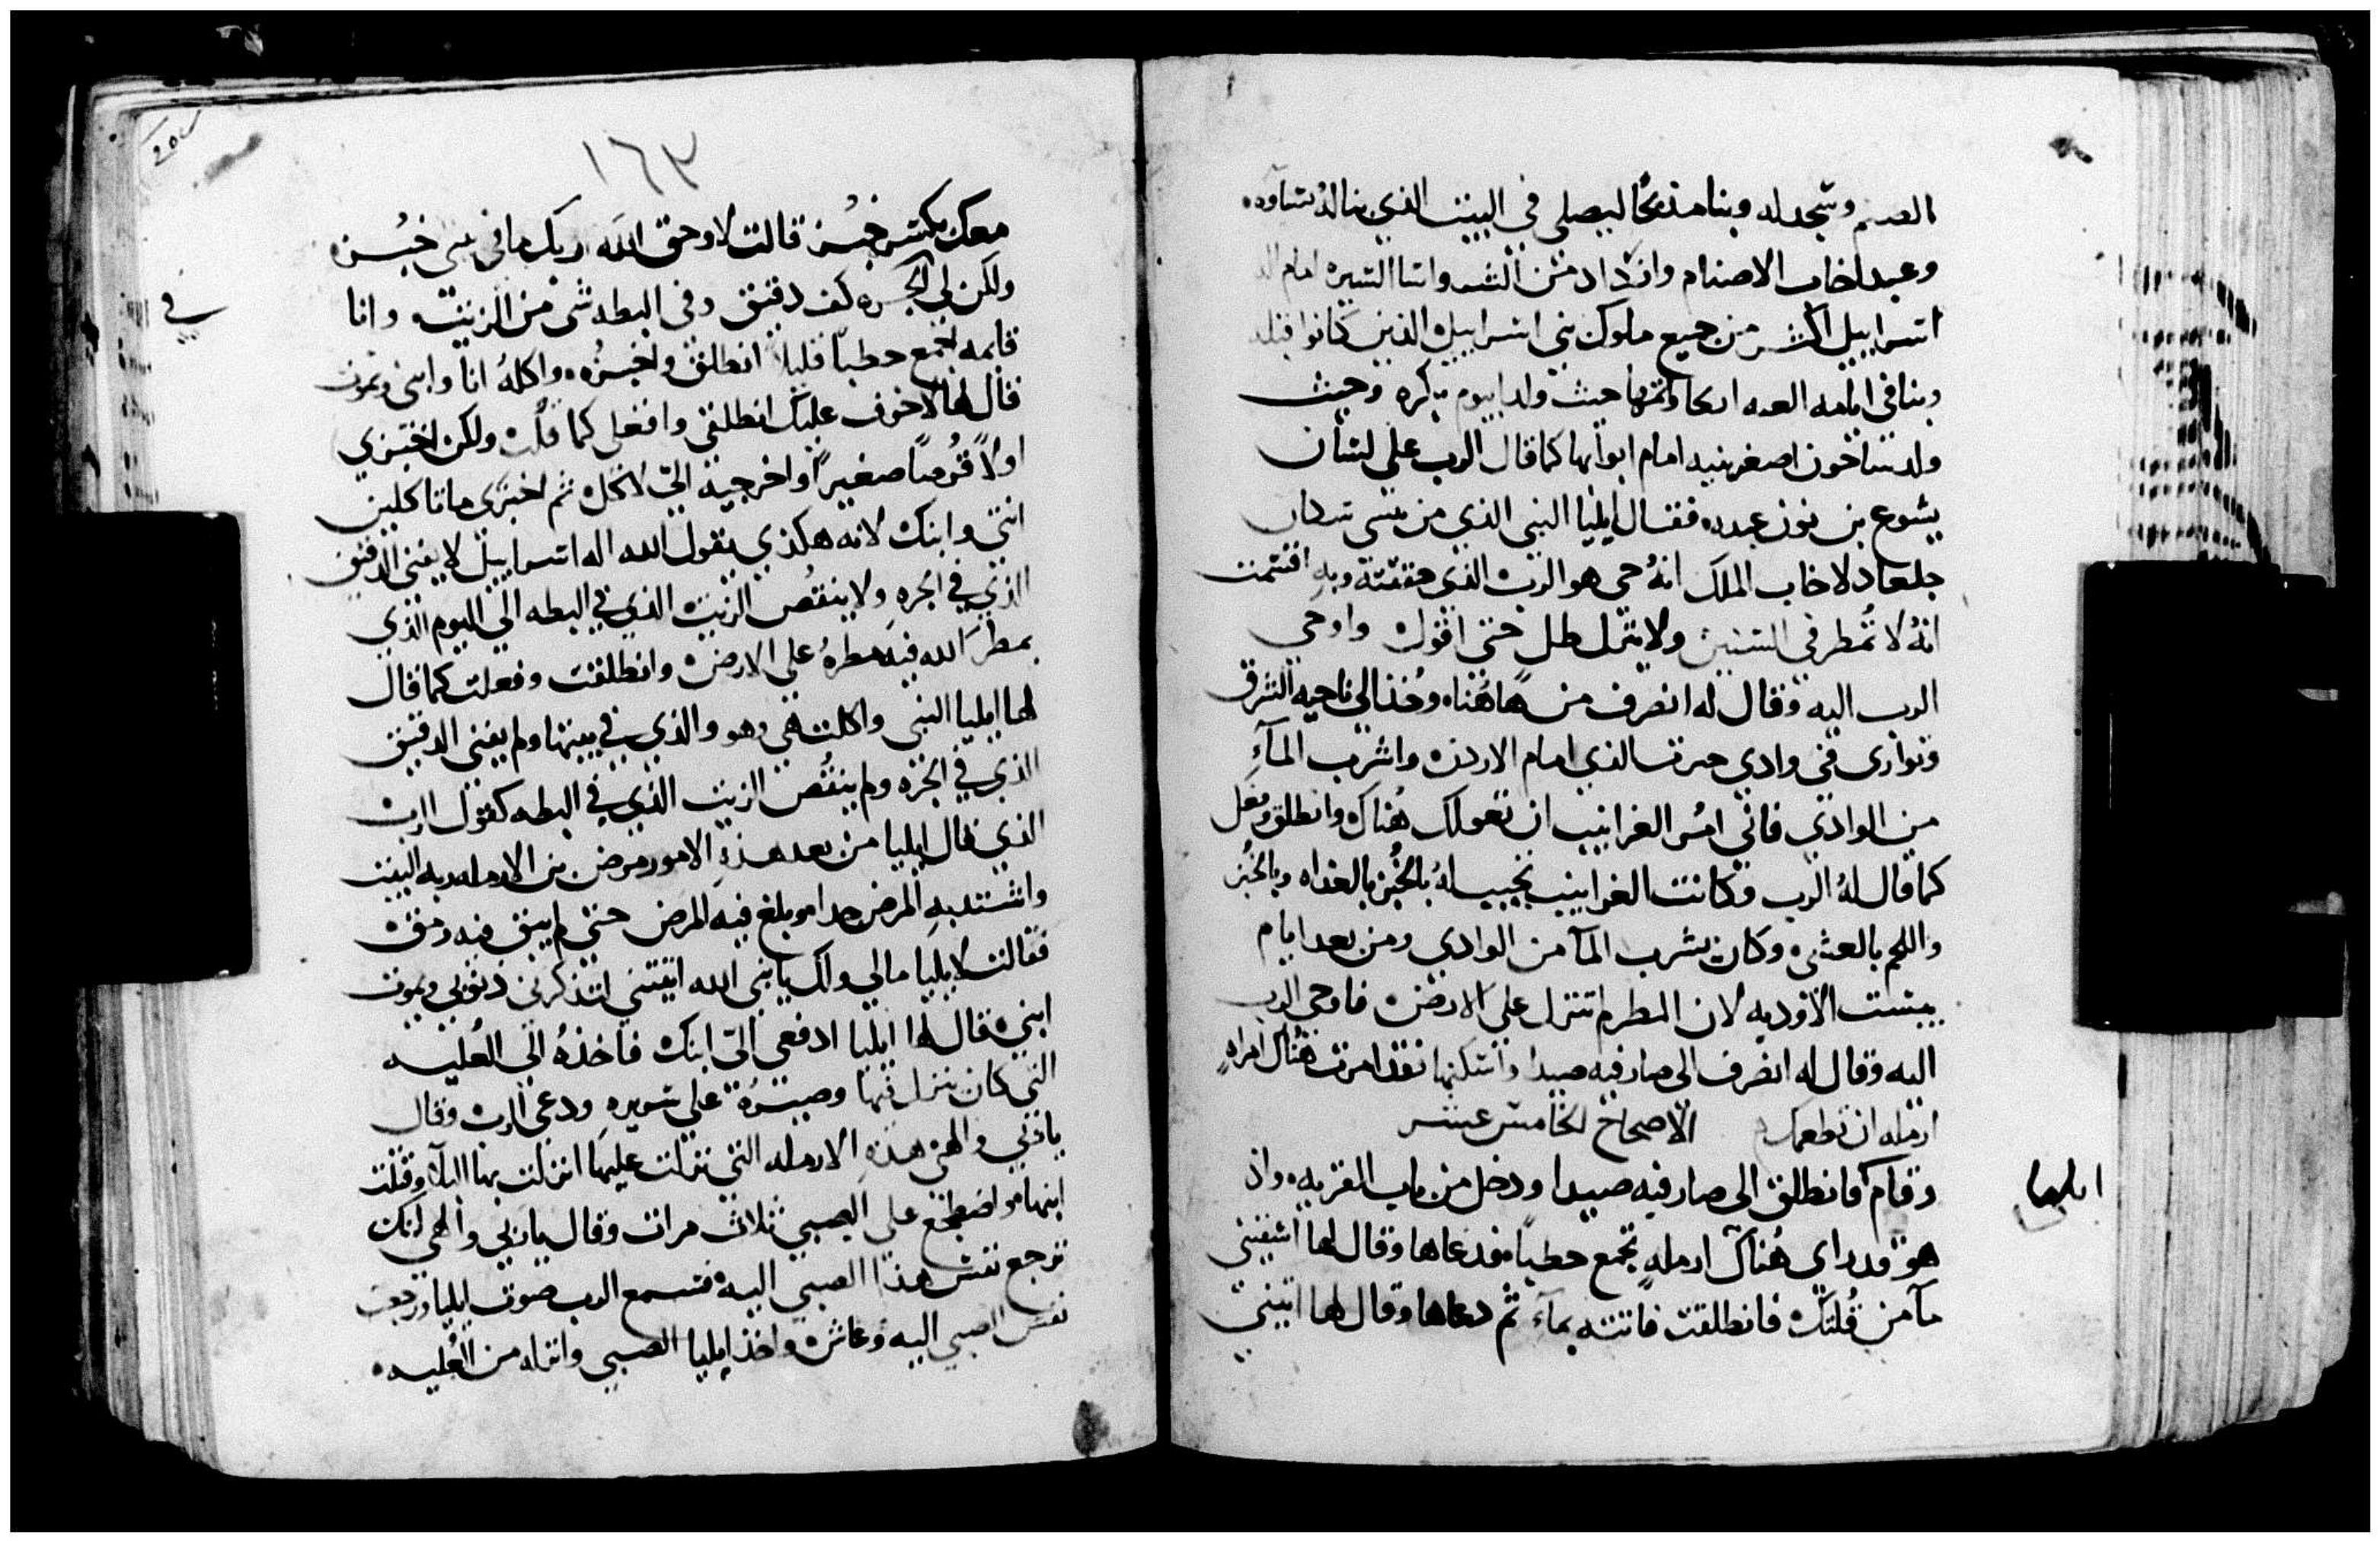 الصنم وسجد له وبنا مذبحًا ليصلي في البيت الذي بنا لذنساوه
وعبد اخاب الاصنام وازداد من الشر واسا السيره امام
اسراييل اكثر من جميع ملوك بني اسراييل الذين كانوا قبله
وبنا في ايامه اريحا حيث ولد ابيوم بكره وحيث
ولد ساخون اصغر بنيه امام ابوابها كما قال الرب على لسان
يشوع بن نون عبده فقال ايليا النبي الذي من سكان
جلعاد لاخاب الملك انهُ حي هو الرب الذي وبه اقسمت
انهُ لا تُمطر في السنين ولا ينزل طل حتى اقول واوحي
الرب اليه وقال له انصرف من هاهُنا وخُذ الى ناحيه الشرق
وتوارى في وادي حرت الذي امام الاردن واشرب المآء
من الوادي فاني امُر الغرابيب ان تعولك هُناك وانطلق وفعل
كما قال لهُ الرب وكانت الغرابيب تجيب لهُ بالخُبز بالغداه وبالخُبز
واللحم بالعشي وكان يشرب المآ من الوادي ومن بعد ايام
يبست الاوديه لان المطر لم تنزل على الارض فاوحى الرب
اليه وقال له انصرف الى صارفيه صيدا واسكنها فقد امرت هُناك امراهٍ
ارمله ان تطعمك الاصحاح الخامس عشر
وقام فانطلق الى صارفيه صيدا ودخل من باب القريه واذ
هو قد راى هُناك ارملهٍ تجمع حطبًا فدعاها وقال لها اسقيني
مآ من قُلتك فانطلقت فاتته بمآء ثم دعاها وقال لها اتيني
ايليا
١٦٣
معك بكسر خبُز قالت لا وحق الله ربك ما في بيتي خبُز
ولكن لي في الجره كف دقيق وفي البطه شي من الزيت وانا
قايمه اجمع حطبًا قليلا انطلق واخبزُه واكلهُ انا وابني ونموت
فقال لها لا خوف عليك انطلقي وافعلي كما قلت ولكن اختبزي
اولاً قُرصًا صغيرًا واخرجيه اليّ لاكل ثم اختبزي ما تاكلين
انتي وابنك لانه هكذي يقول الله اله اسراييل لا يفني الدقيق
الذي في الجره ولا ينقُص الزيت الذي في البطه الى اليوم الذي
يمطر الله فيه مطرهُ على الارض وانطلقت وفعلت كما قال
لها ايليا النبي واكلت هي وهو والذي في بيتها ولم يفنى الدقيق
الذي في الجره ولم ينقُص الزيت الذي في البطه كقول الرب
الذي قال ايليا من بعد هذهِ الامور مرض بن الارمله ربه البيت
واشتد بهِ المرض جدا وبلغ فيه المرض حتى لم يبق فيه رمق
فقالت لايليا مالي ولك يا نبي الله اتيتني لتذكرني ذنوبي ويموت
ابني قال لها ايليا ادفعي اليّ ابنك فاخذهُ الى العُليه
التي كان ينزل فيها وصيرهُ على سريره ودعى الرب وقال
يا ربي والهي هذهِ الارمله التي نزلت عليها انزلت بها البلآ وقتلت
ابنها واضطجع على الصبي ثلاث مرات وقال يا ربي والهي لتك
ترجع نفس هذا الصبي اليه فسمع الرب صوت ايليا ورجعت
نفس الصبي اليه وعاش واخذ ايليا الصبي وانزله من العُليه
في